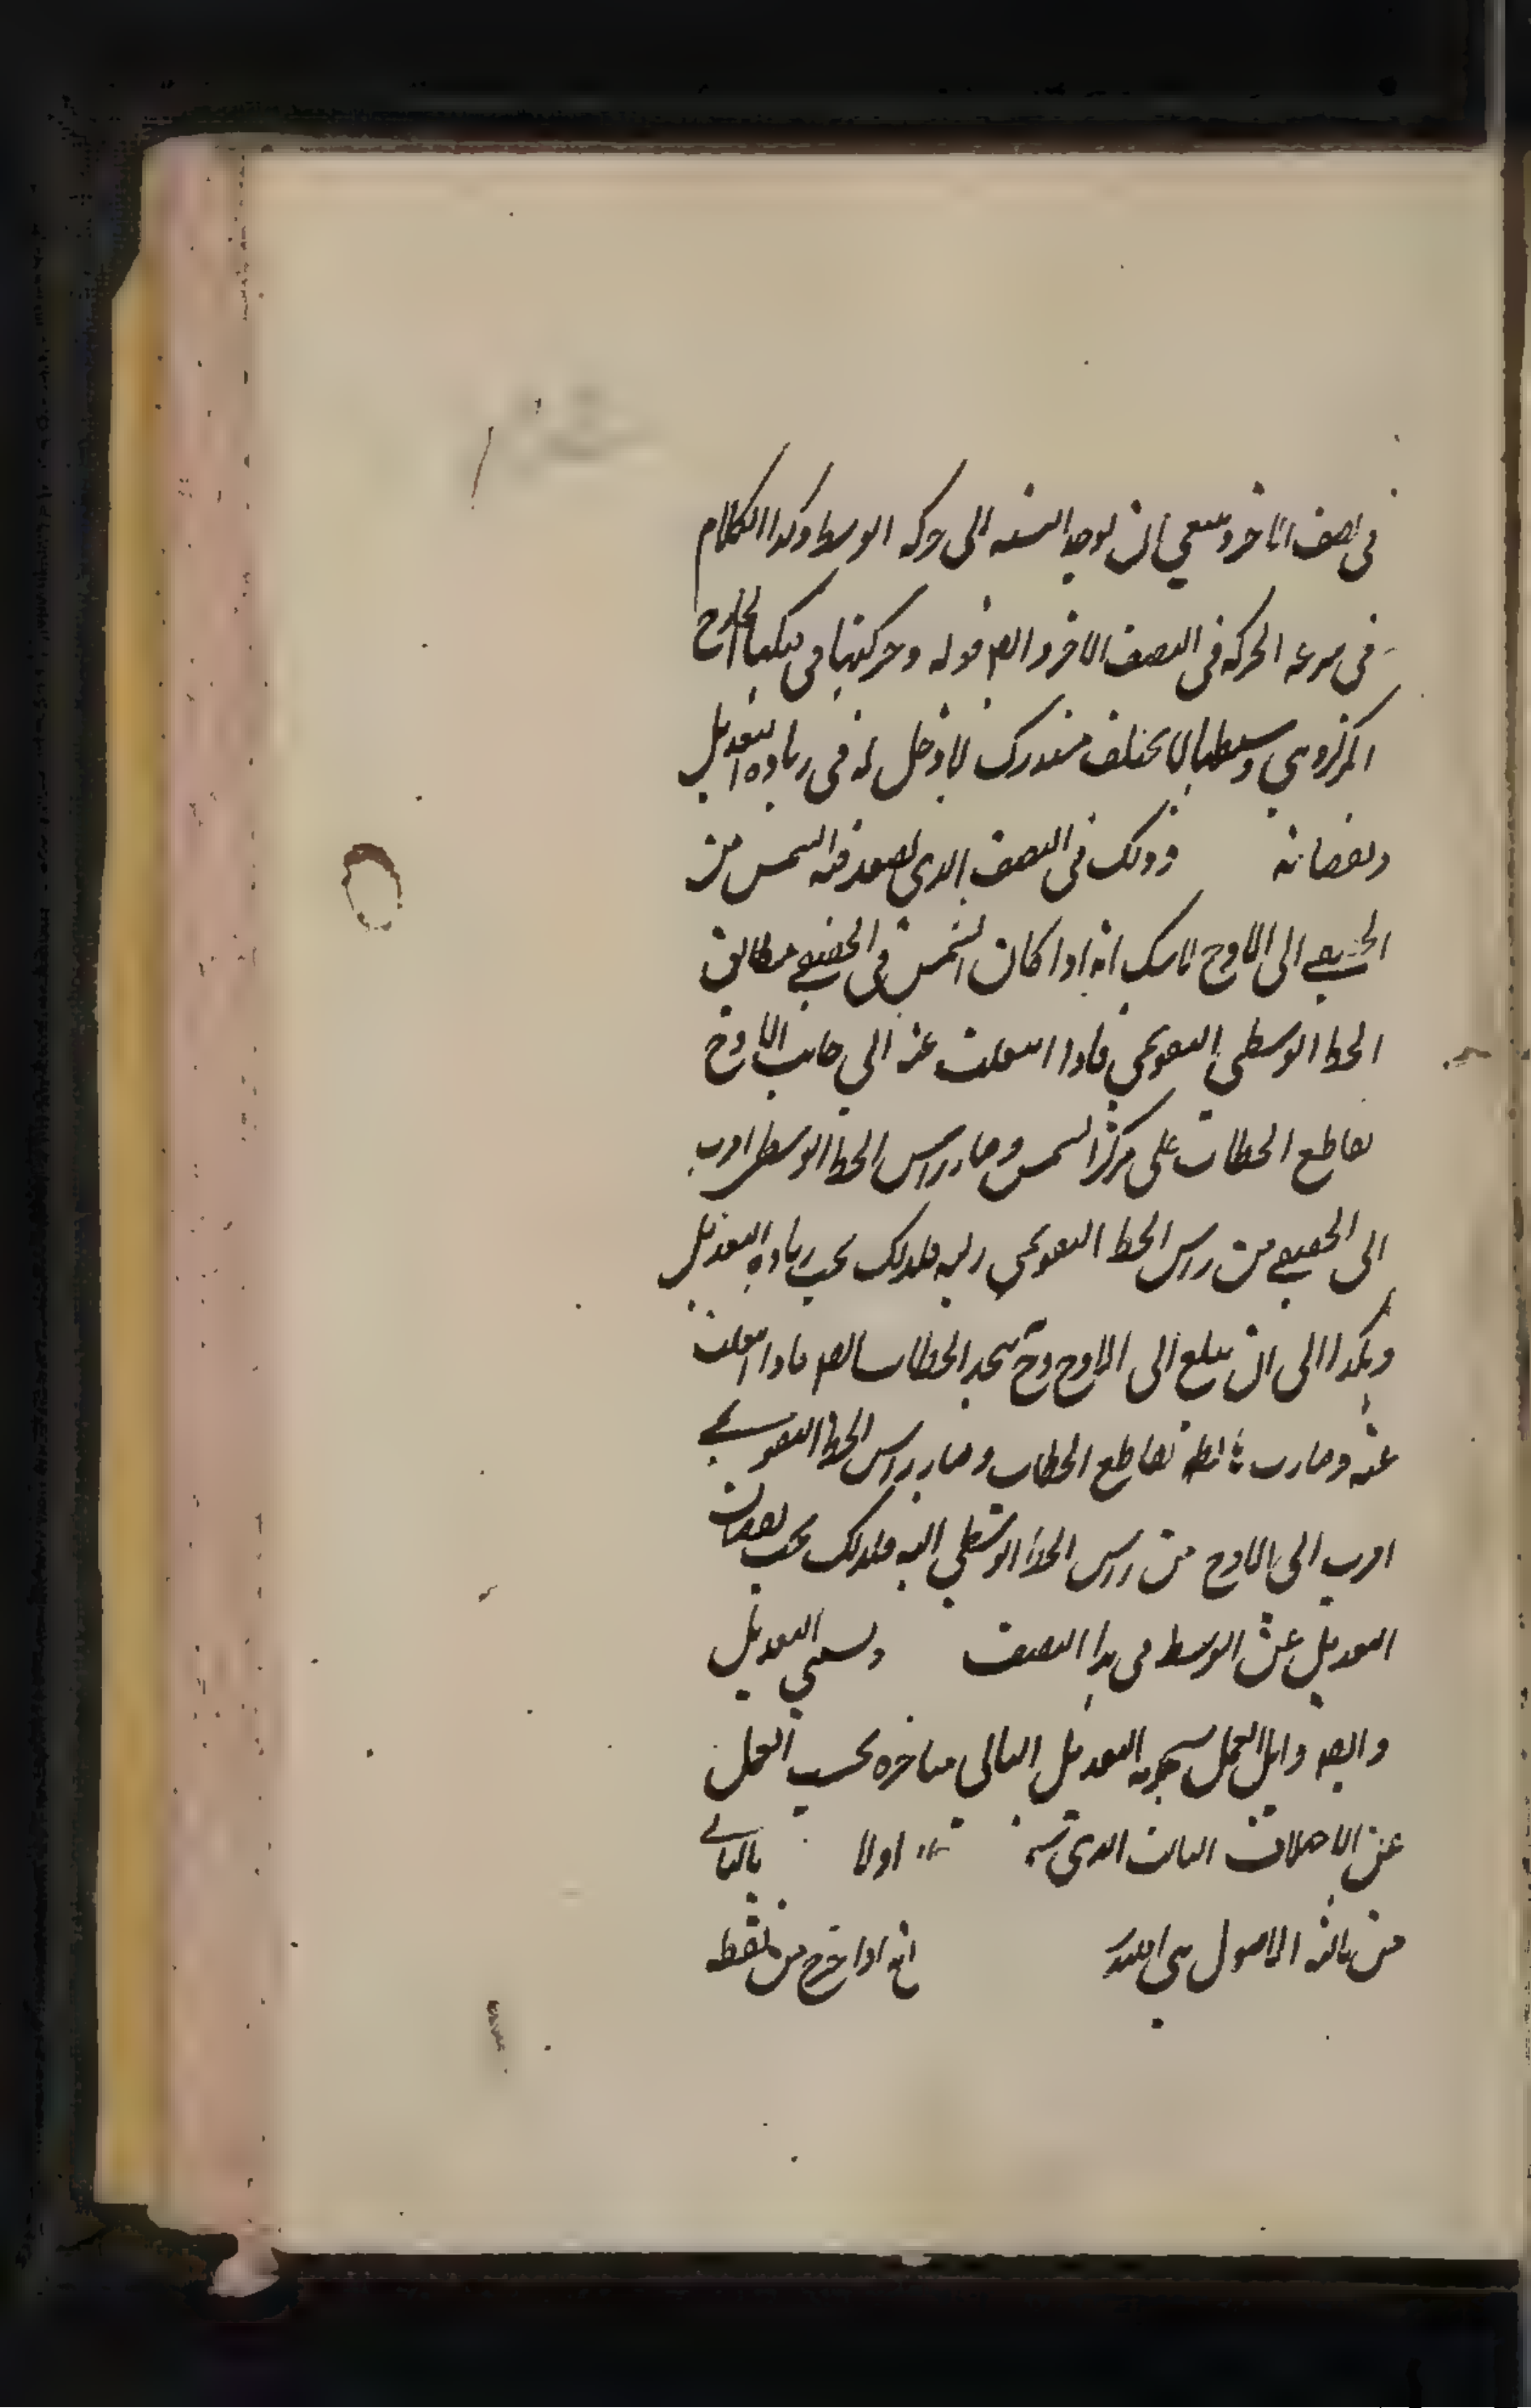 في نصف الآخر وينبغي ان يوجد النسبة الى حركة الوسط وكذا الكلام
في سرعة الحركة في النصف الآخر وايضا قوله وحركتها في فلكها الخارج
المركز وهي وسطها لا يختلف مستدرك لا دخل له في زيادة التعديل
ونقصانه وذلك في النصف الذي تصعد فيه الشمس من
الحضيض الى الاوج لا شك انه اذا كان الشمس في الحضيض يتطابق
الخط الوسطي التقويمي فاذا انتقلت عنه الى جانب الاوج
تقاطع الخطان على مركز الشمس وصار راس الخط الوسطي اقرب
الى الحضيض من راس الخط التقويمي اليه فلذلك يجب زيادة التعديل
وهكذا الى ان يبلغ الى الاوج وح يتحد الخطان ايضا فاذا انتقلت
عنه وصارت هابطة تقاطع الخطان وصار راس الخط التقويمي
اقرب الى الاوج من راس الخط الوسطي اليه فلذلك يجب نقصان
التعديل عن الوسط في هذا النصف ويسمى التعديل
وايضا واهل العمل يسمونه التعديل الثاني متاخره بحسب العمل
عن الاختلاف الثالث الذي اولا بالثاني
من الاصول انه اذا خرج من نقطة